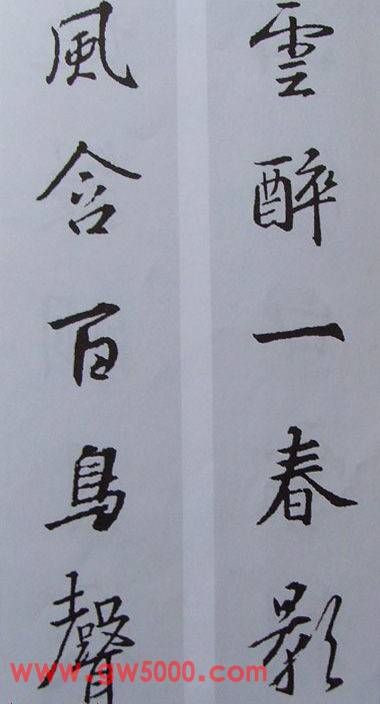 雲醉一春影
風含百鳥聲
www.gw5000.com